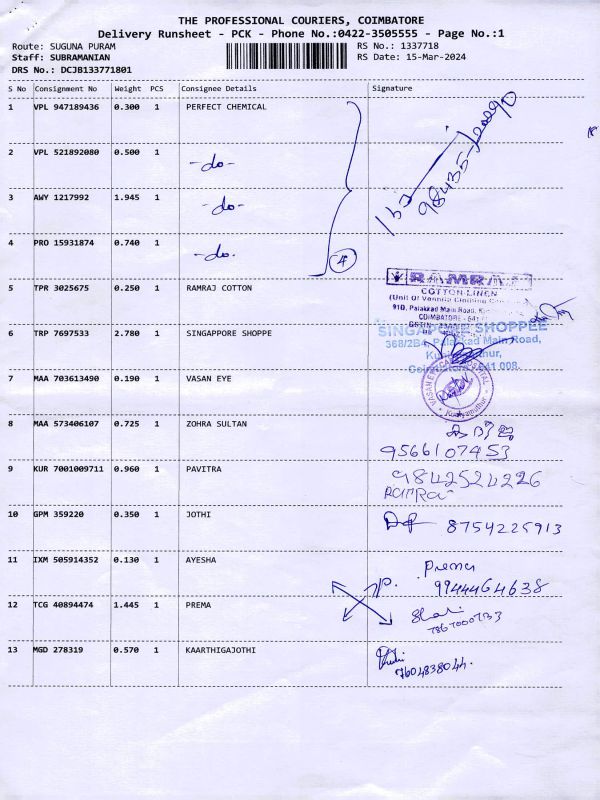 THE PROFESSIONAL COURIERS, COIMBATORE
Delivery Runsheet - PCK - Phone No.:0422-3505555 - Page No.:1
Route: SUGUNA PURAM
RS No.: 1337718
Staff: SUBRAMANIAN
RS Date: 15-Mar-2024
DRS No.: DCJB133771801
S No Consignment No Weight PCS Consignee Details Signature
1 VPL 947189436 0.300 1 PERFECT CHEMICAL
2 VPL 521892080 0.500 1 -do-
3 AWY 1217992 1.945 1 -do-
4 PRO 15931874 0.740 1 -do-
4
5 TPR 3025675 0.250 1 RAMRAJ COTTON
RAMRAJ
COTTON-LINEN
COIMBATORE
6 TRP 7697533 2.780 1 SINGAPPORE SHOPPE
SINGAPORE SHOPPEE
368/2B4, Palakkad Main Road,
7 MAA 703613490 0.190 1 VASAN EYE
8 MAA 573406107 0.725 1 ZOHRA SULTAN
9566107453
9 KUR 7001009711 0.960 1 PAVITRA
9842524226
10 GPM 359220 0.350 1 JOTHI 8754225913
11 IXM 505914352 0.130 1 AYESHA
Prema
9944464638
12 TCG 40894474 1.445 1 PREMA
13 MGD 278319 0.570 1 KAARTHIGAJOTHI
7604838044.